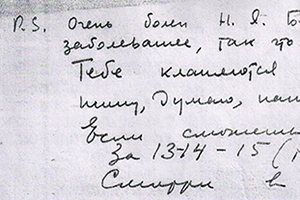 P.S. Очень болен Н. Я. Б
заболевание, так что
Тебе кланяются
пишу, думаю,
Если сможешь
За 13-14-15 (
Смотри в